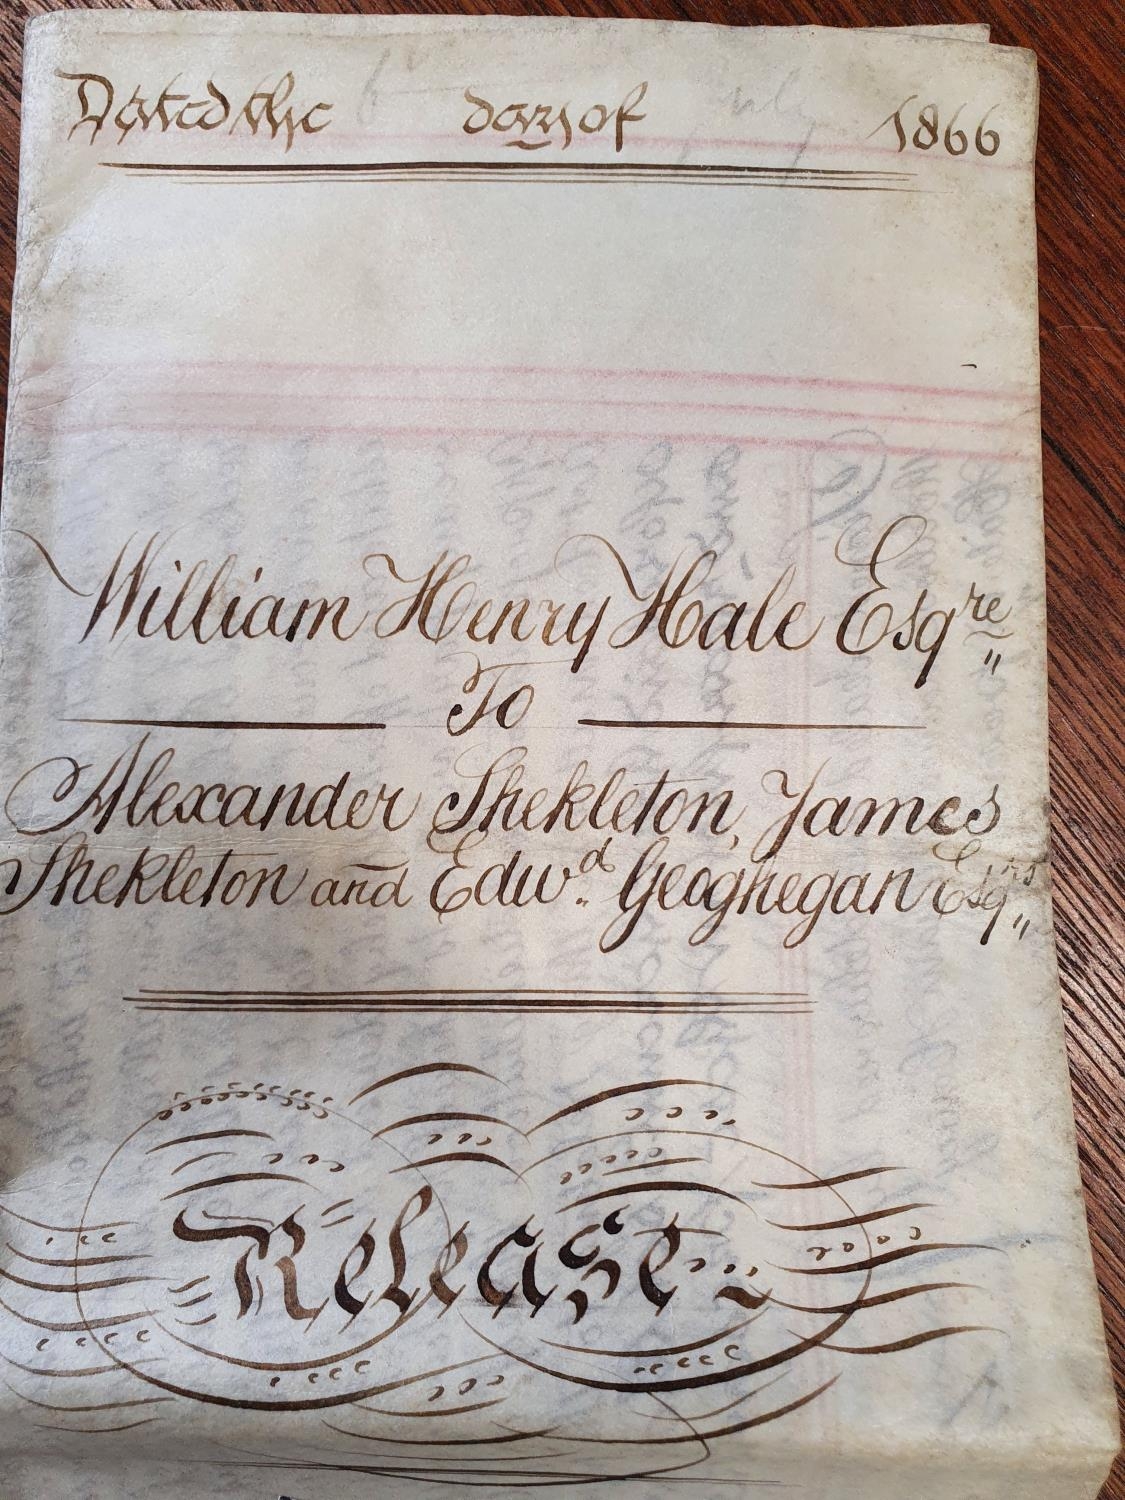 Dated the 6th day of July 1866
William Henry Hale Esqre
To
Alexander Shekleton, James
Shekleton and Edwd. Geoghegan Esqrs
Release